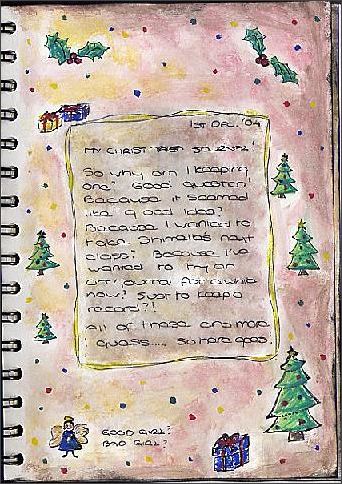 1st DEC. '04
MY CHRISTMAS JOURNAL!
So why am I keeping
one? Good question!
Because it seemed
like a good idea?
Because I wanted to
take Shimelle's next
class? Because I've
wanted to try an
art journal for a while
now? Just to keep a
record?!
All of these and more
I guess.... so here goes
GOOD GIRL?
BAD GIRL?